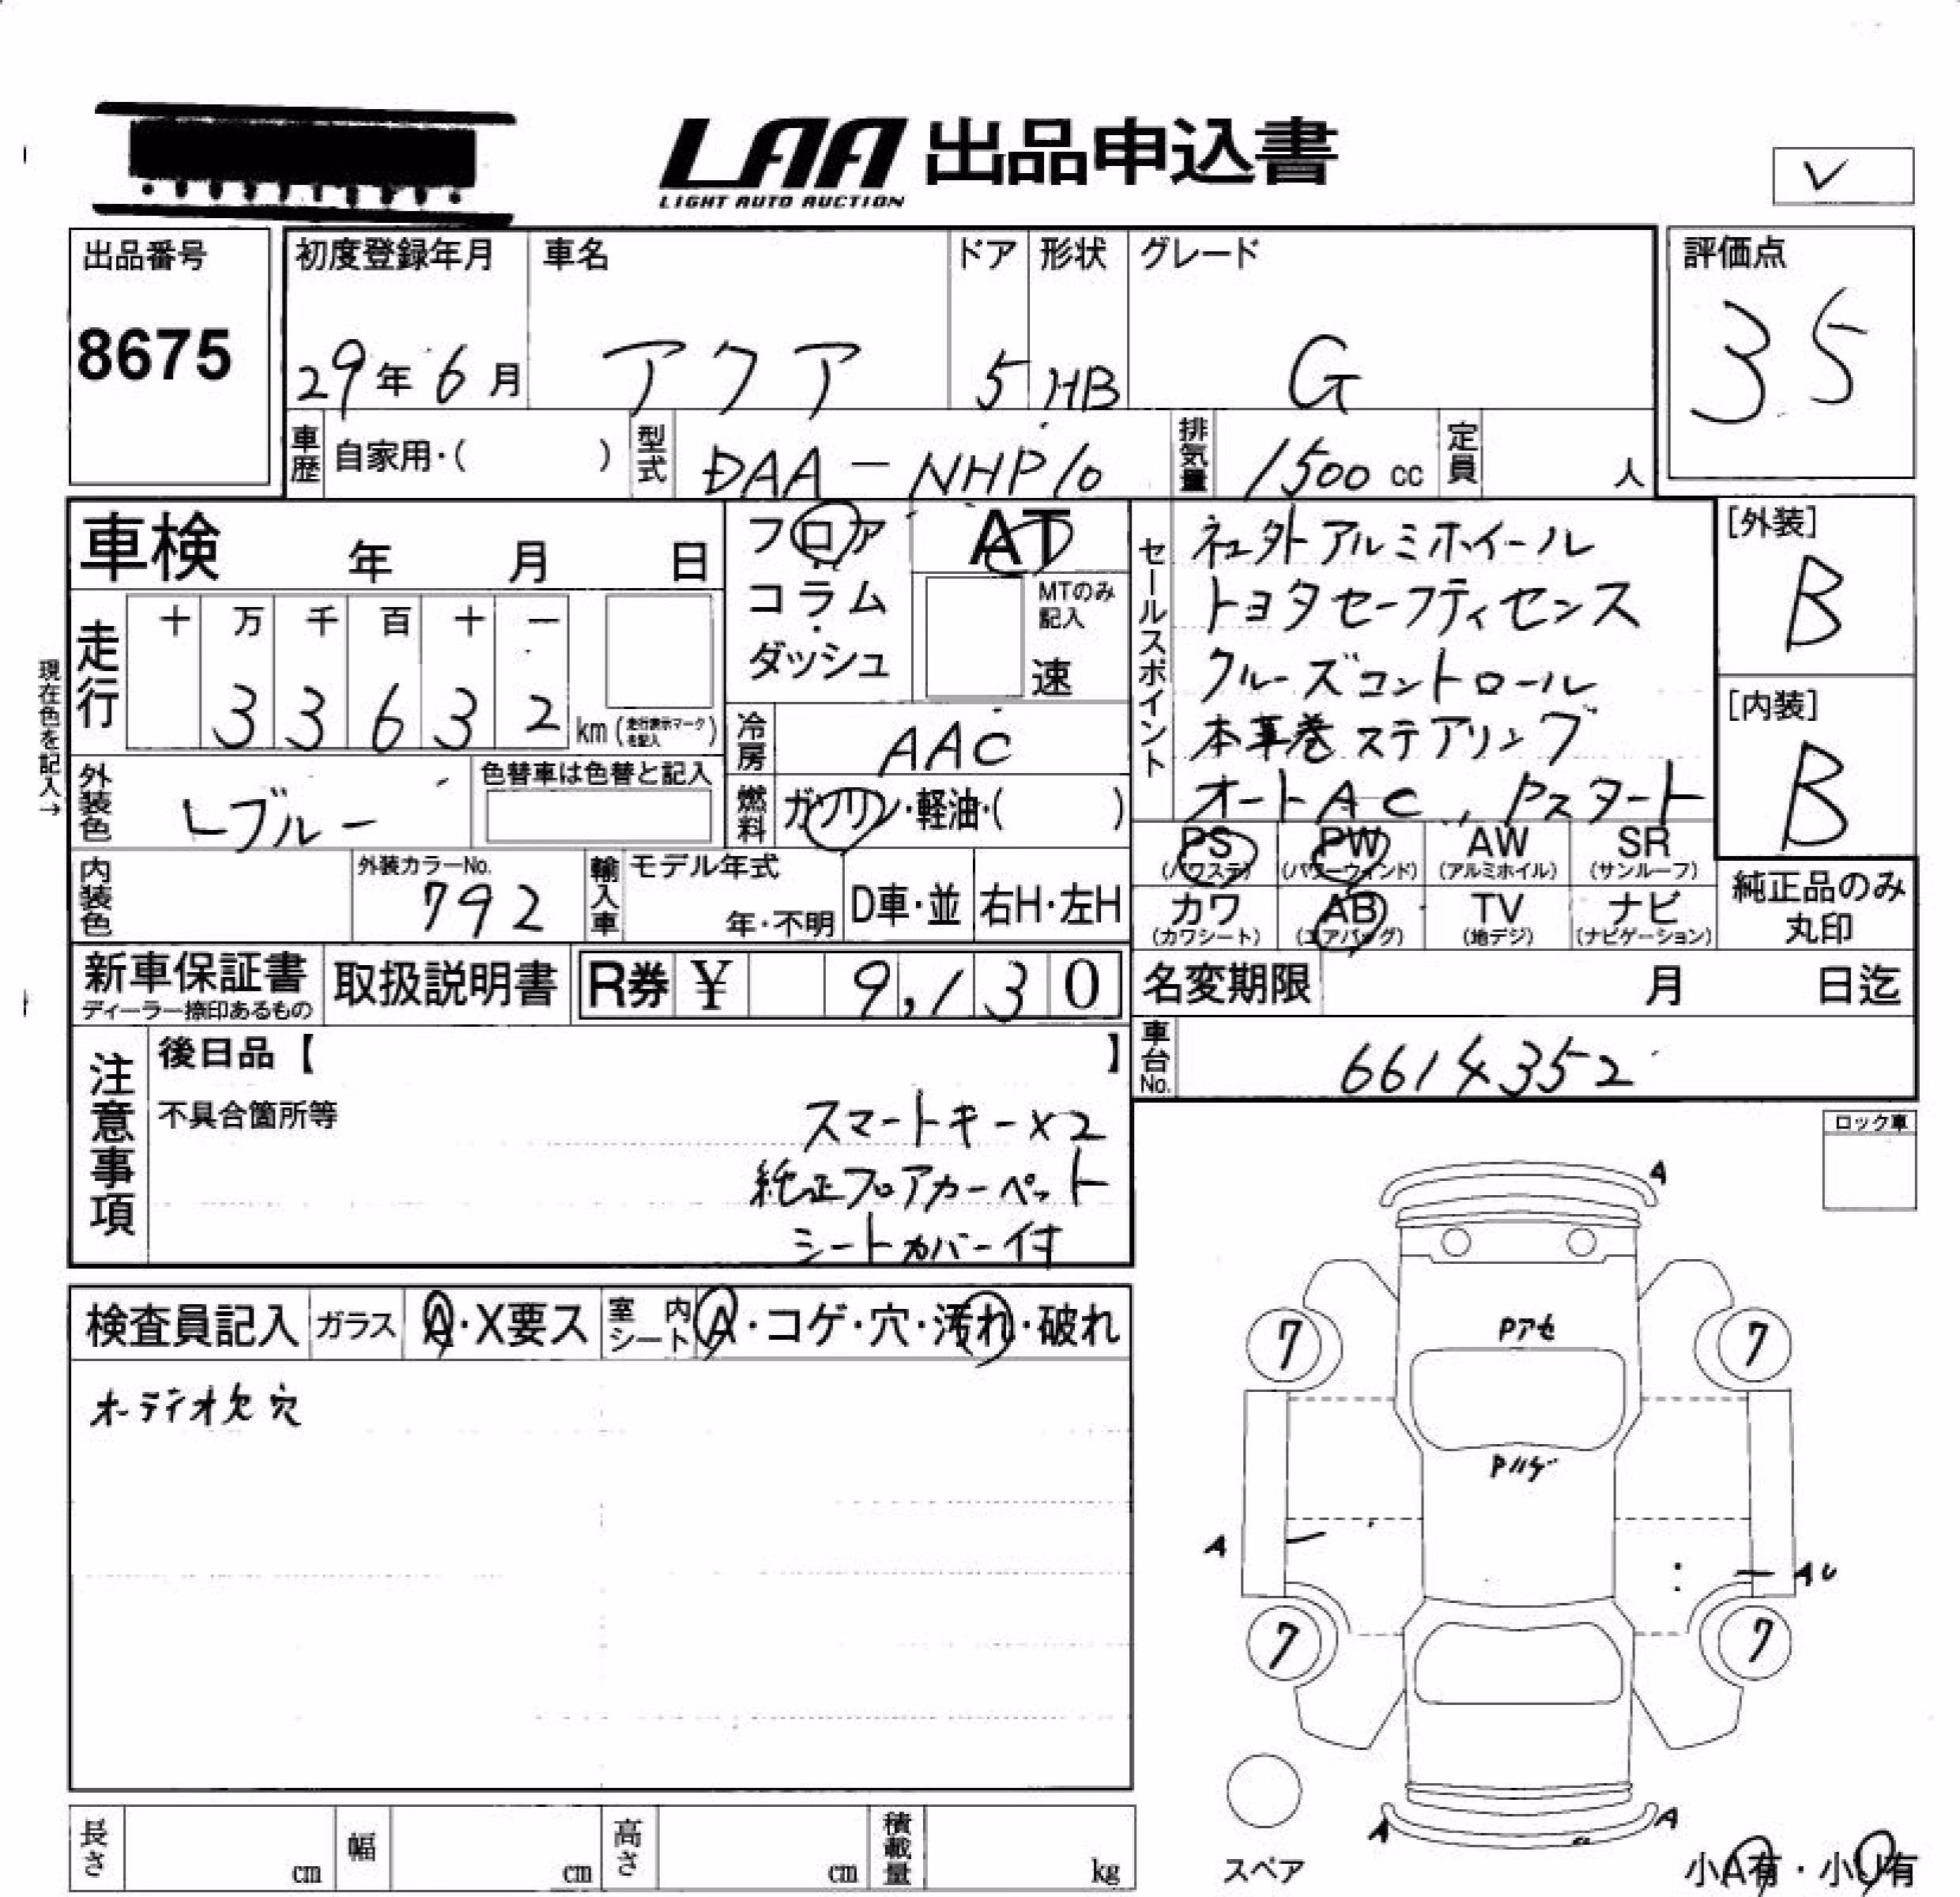 LAA 出品申込書
LIGHT AUTO AUCTION
出品番号
8675
初度登録年月
29年6月
車名
アクア
ドア
5
形状
HB
グレード
G
評価点
35
車歴
自家用・( )
型式
DAA-NHP10
排気量
1500cc
定員
人
車検 年 月 日
フロア
コラム
ダッシュ
AT
MTのみ
記入
速
セールスポイント
社外アルミホイール
トヨタセーフティセンス
クルーズコントロール
本革巻ステアリング
オートAC, Pスタート
[外装]
B
[内装]
B
現在色を記入→
走行
十 万 千 百 十 一
3 3 6 3 2 km(走行表示マークを記入)
冷房
AAC
外装色
Lブルー
色替車は色替と記入
燃料
ガソリン・軽油・( )
PS
(パワステ)
PW
(パワーウィンド)
AW
(アルミホイル)
SR
(サンルーフ)
カワ
(カワシート)
AB
(エアバッグ)
TV
(地デジ)
ナビ
(ナビゲーション)
純正品のみ
丸印
内装色
外装カラーNo.
792
輸入車
モデル年式
年・不明
D車・並
右H・左H
新車保証書
ディーラー捺印あるもの
取扱説明書
R券 ¥ 9,130
名変期限 月 日迄
車台No.
6614352
注意事項
後日品【 】
不具合箇所等
スマートキー×2
純正フロアカーペット
シートカバー付
ロック車
検査員記入
ガラス
A・X要ス
室内
シート
A・コゲ・穴・汚れ・破れ
オーディオ欠穴
A
Pアセ
7
7
Pハゲ
A
AU
7
7
A
A
スペア
小A有・小U有
長さ cm
幅 cm
高さ cm
積載量 kg